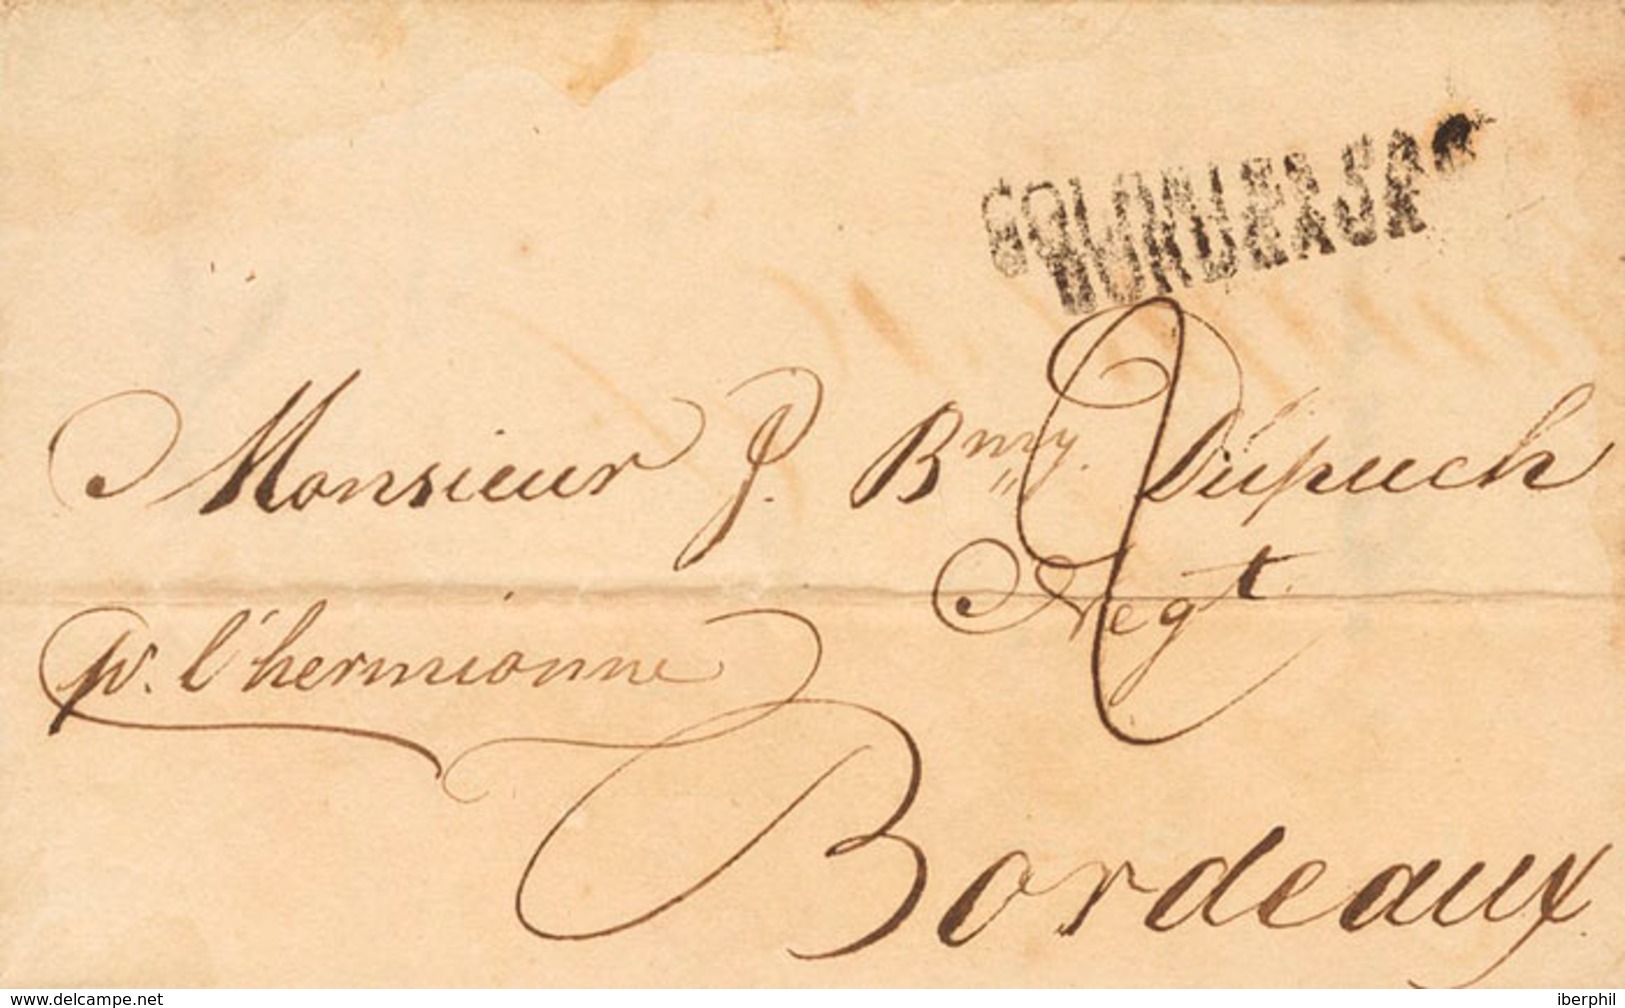 COLONIES PAR
BORDEAUX
Monsieur J. Bmy. Dupuch
Negt.
pr. l'hermionne
2
Bordeaux
www.delcampe.net
iberphil